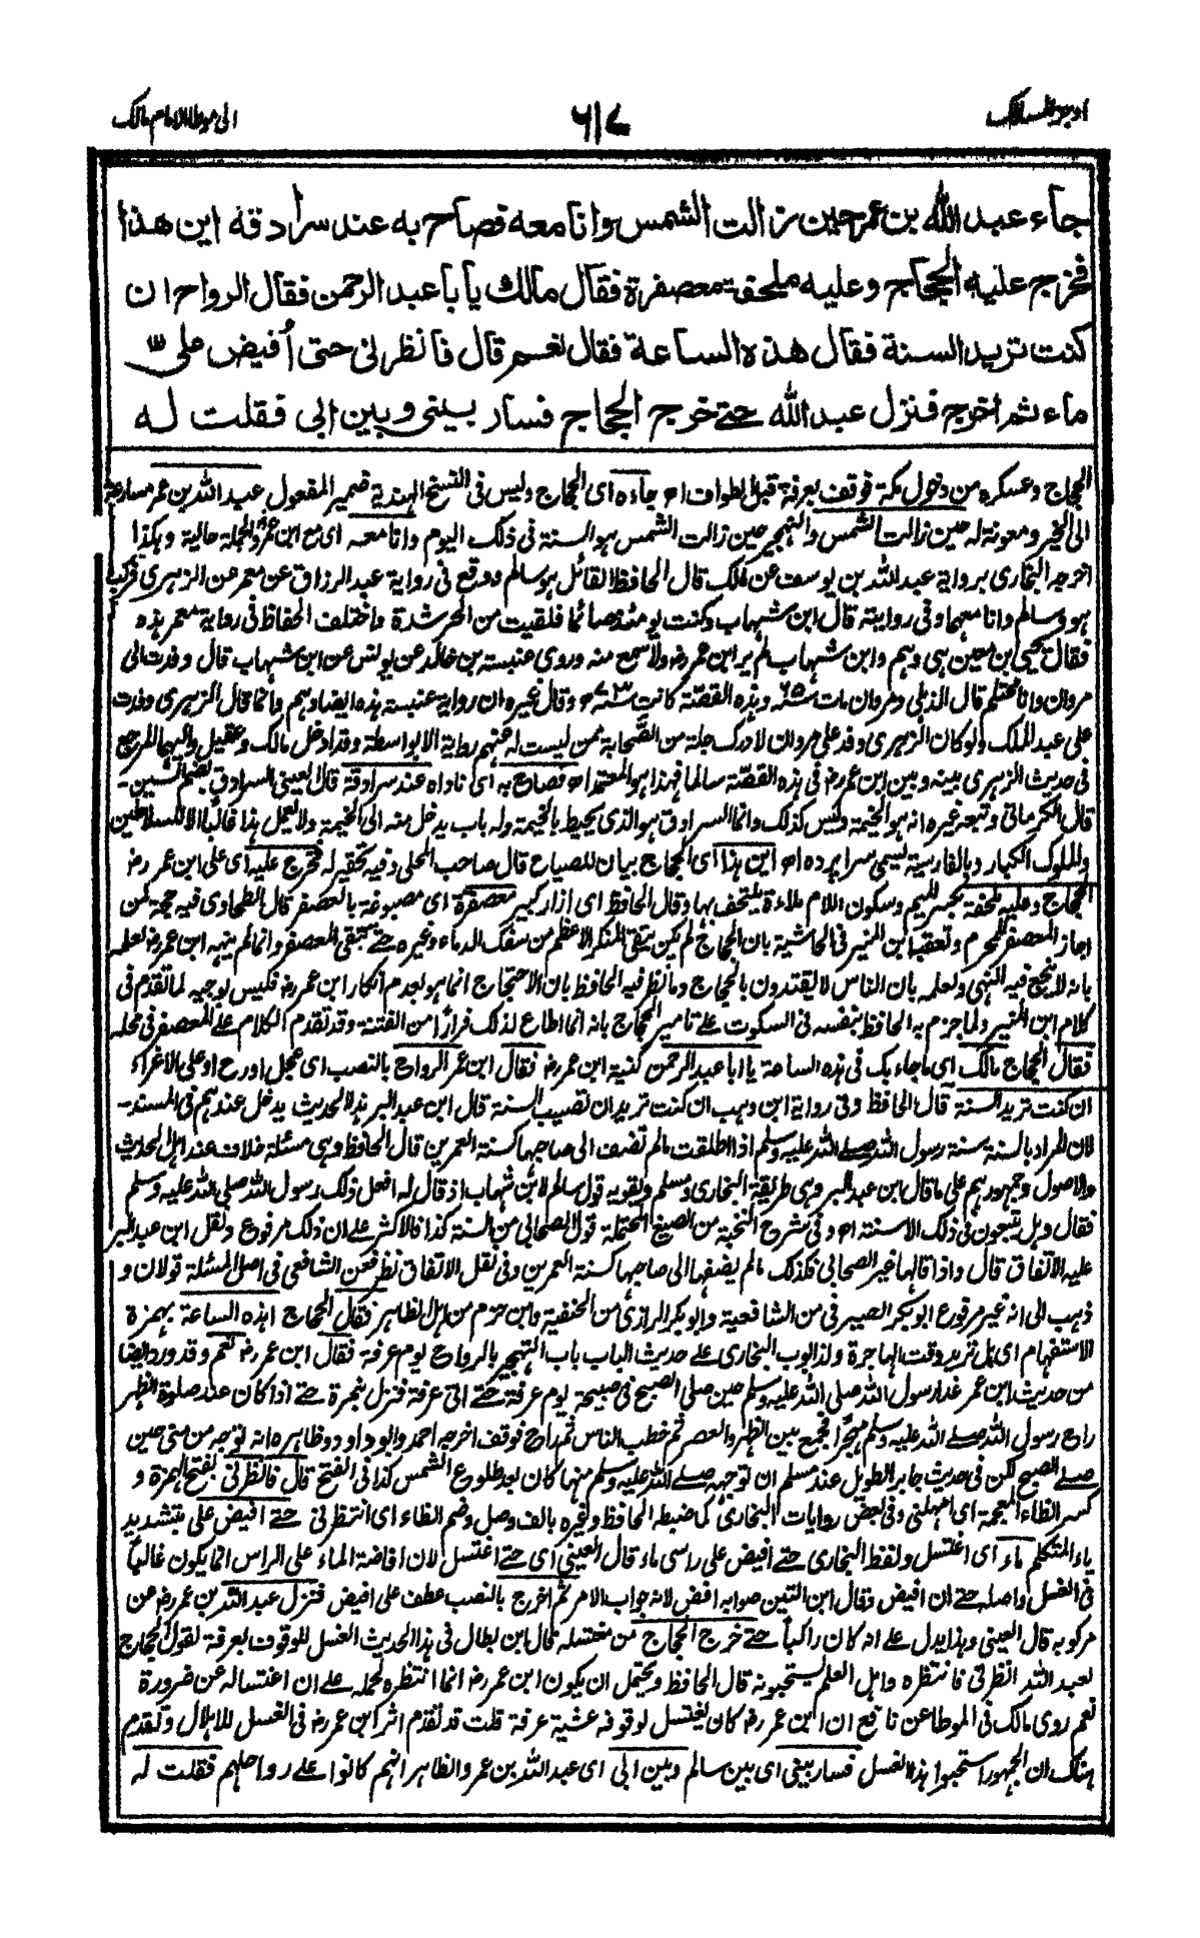 اوجز المسالك
٦١٧
الى موطا الامام مالك
جاء عبد الله بن عمر حين زالت الشمس وانا معه فصاح به عند سرادقه اين هذا
فخرج عليه الحجاج وعليه ملحفة معصفرة فقال مالك يا ابا عبد الرحمن فقال الرواح ان
كنت تريد السنة فقال هذه الساعة فقال نعم قال فانظرنى حتى أفيض على
ماء ثم اخرج فنزل عبد الله حتے خرج الحجاج فسار بينى وبين ابى فقلت له
الحجاج وعسكره من دخول مكة فوقف بعرفة قبل الطواف اھ جاءه اى الحجاج وليس فى النسخ الهندية ضمير المفعول عبد الله بن عمر مسارعة
الى الخير ومعونة له حين زالت الشمس والتهجير حين زالت الشمس هو السنة فى ذلك اليوم وانا معه اى مع ابن عمر والجملة حالية وهكذا
اخرجه البخارى برواية عبد الله بن يوسف عن مالك قال الحافظ القائل هو سالم ووقع فى رواية عبد الرزاق عن معمر عن الزهرى فركب
هو وسالم وانا معهما وفى روايته قال ابن شهاب وكنت يومئذ صائما فلقيت من الحر شدة واختلف الحفاظ فى رواية معمر هذه
فقال يحيى بن معين هى وهم وابن شهاب لم ير ابن عمر رض ولا سمع منه وروى عنبسة بن خالد عن يونس عن ابن شهاب قال وفدت الى
مروان وانا محتلم قال الذهلى ومروان مات سنة ٦٥ وهذه القصة كانت سنة ٧٣ھ وقال غيره ان رواية عنبسة هذه ايضا وهم وانما قال الزهرى وفدت
على عبد الملك ولو كان الزهرى وفد على مروان لادرك جلة من الصحابة ممن ليست له عنهم رواية الا بواسطة وقد ادخل مالك وعقيل واليهما المرجع
فى حديث الزهرى بينه وبين ابن عمر رض فى هذه القصة سالما فهذا هو المعتمد اھ فصاح به اى ناداه عند سرادقة قال العينى السرادق بضم السين
قال الكرمانى وتبعه غيره انه هو الخيمة وليس كذلك وانما السرادق هو الذى يحيط بالخيمة وله باب يدخل منه الى الخيمة ولا يعمل هذا غالبا الا للسلاطين
والملوك الكبار وبالفارسية يسمى سراپرده اھ اين هذا اى الحجاج بيان للصياح قال صاحب المحلى وفيه تحقير له فخرج عليه اى على ابن عمر رض
الحجاج وعليه ملحفة بكسر الميم وسكون اللام ملاءة يلتحف بها وقال الحافظ اى ازار كبير معصفرة اى مصبوغة بالعصفر قال الطحاوى فيه حجة لمن
اجاز المعصفر للمحرم وتعقبه ابن المنير فى الحاشية بان الحجاج لم يكن يتقى المنكر الاعظم من سفك الدماء وغيره حتے يتقى المعصفر وانما لم ينهه ابن عمر رض لعلمه
بانه لا ينجع فيه النهى ولعلمه بان الناس لا يقتدون بالحجاج وما نظر فيه الحافظ بان الاحتجاج انما هو بعدم انكار ابن عمر رض فليس بوجيه لما تقدم فى
كلام ابن المنير ولما جزم به الحافظ بنفسه فى السكوت علے تامير الحجاج بانه انما اطاع لذلك فرارا من الفتنة وقد تقدم الكلام علے المعصفر فى محله
فقال الحجاج مالك اى ما جاء بك فى هذه الساعة يا ابا عبد الرحمن كنية ابن عمر رض فقال ابن عمر الرواح بالنصب اى عجل او رح او على الاغراء
ان كنت تريد السنة قال الحافظ وفى رواية ابن وهب ان كنت تريد ان تصيب السنة قال ابن عبد البر هذا الحديث يدخل عندهم فى المسند
لان المراد بالسنة سنة رسول الله صلے الله عليه وسلم اذا اطلقت مالم تضف الى صاحبها كسنة العمرين قال الحافظ وهى مسئلة خلاف عند اهل الحديث
والاصول وجمهورهم على ما قال ابن عبد البر وهى طريقة البخارى ومسلم ويقويه قول سالم لابن شهاب اذ قال له افعل ذلك رسول الله صلى الله عليه وسلم
فقال وهل تتبعون فى ذلك الا سنته اھ وفى شرح النخبة من الصيغ المحتملة قول الصحابى من السنة كذا فالاكثر علے ان ذلك مرفوع ونقل ابن عبد البر
عليه الاتفاق قال واذا قالها غير الصحابى فكذلك مالم يضفها الى صاحبها كسنة العمرين وفى نقل الاتفاق نظر فعن الشافعى فى اصل المسئلة قولان و
ذهب الى انه غير مرفوع ابو بكر الصيرفى من الشافعية وابو بكر الرازى من الحنفية وابن حزم من اهل الظاهر فقال الحجاج اهذه الساعة بهمزة
الاستفهام اى هل تريد وقت الهاجرة ولذا بوب البخارى علے حديث الباب باب التهجير بالرواح يوم عرفة فقال ابن عمر رض نعم وقد ورد ايضا
من حديث ابن عمر غدا رسول الله صلى الله عليه وسلم حين صلى الصبح فى صبيحة يوم عرفة حتے اتى عرفة فنزل بنمرة حتے اذا كان عند صلوة الظهر
راح رسول الله صلے الله عليه وسلم مهجرا فجمع بين الظهر والعصر ثم خطب الناس ثم راح فوقف اخرجه احمد وابو داود وظاهره انه توجه من منى حين
صلے الصبح لكن فى حديث جابر الطويل عند مسلم ان توجهه صلے الله عليه وسلم منها كان بعد طلوع الشمس كذا فى الفتح قال فانظرنى بفتح الهمزة و
كسر الظاء المعجمة اى امهلنى وفى بعض روايات البخارى كما ضبطه الحافظ وغيره بالف وصل وضم الظاء اى انتظرنى حتے افيض على بتشديد
ياء المتكلم ماء اى اغتسل ولفظ البخارى حتے افيض على راسى ماء قال العينى اى حتے اغتسل لان افاضة الماء على الراس انما يكون غالبا
فى الغسل واصله حتے ان افيض وقال ابن التين صوابه افض لانه جواب الامر ثم اخرج بالنصب عطف على افيض فنزل عبد الله بن عمر رض عن
مركوبه قال العينى وهذا يدل علے انه كان راكبا حتے خرج الحجاج من مغتسله قال ابن بطال فى هذا الحديث الغسل للوقوف بعرفة لقول الحجاج
لعبد الله انظرنى فانتظره واهل العلم يستحبونه قال الحافظ ويحتمل ان يكون ابن عمر رض انما انتظره لحمله علے ان اغتساله عن ضرورة
نعم روى مالك فى الموطا عن نافع ان ابن عمر رض كان يغتسل لوقوفه عشية عرفة قلت قد تقدم اثر ابن عمر رض فى الغسل للاهلال وتقدم
هناك ان الجمهور استحبوا هذا الغسل فسار بينى اى بين سالم وبين ابى اى عبد الله بن عمر والظاهر انهم كانوا علے رواحلهم فقلت له